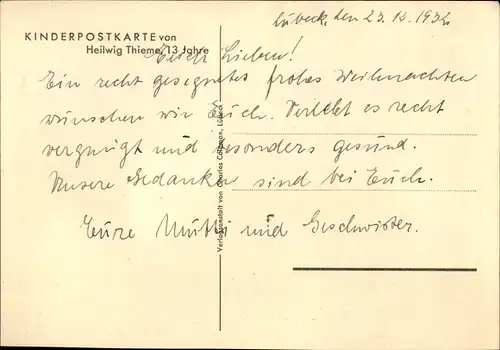 Lübeck, den 23.12.1932
KINDERPOSTKARTE von
Heilwig Thieme, 13 Jahre
Euch Lieben!
Ein recht gesegnetes frohes Weihnachten
wünschen wir Euch. Verlebt es recht
vergnügt und besonders gesund.
Unsere Gedanken sind bei Euch.
Eure Mutti und Geschwister.
Verlagsanstalt von Charles Coleman, Lübeck